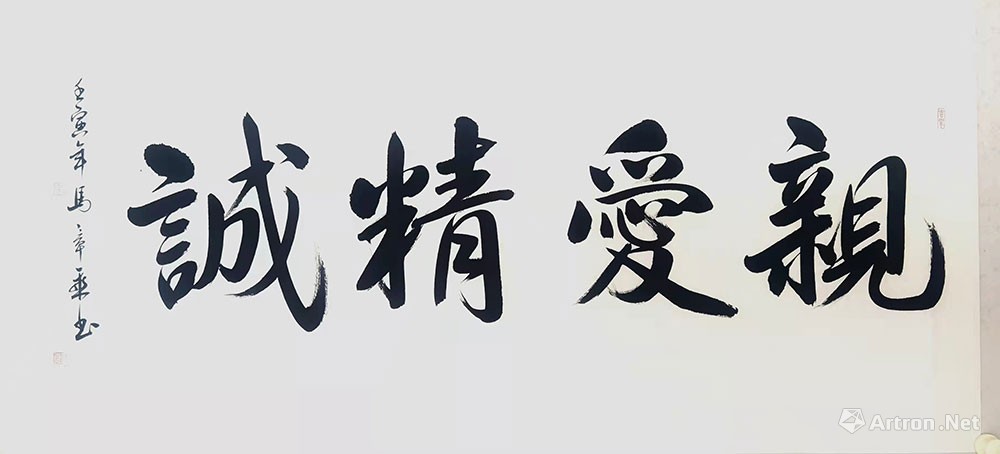 親愛精誠
壬寅年馬章乘书
Artron.Net